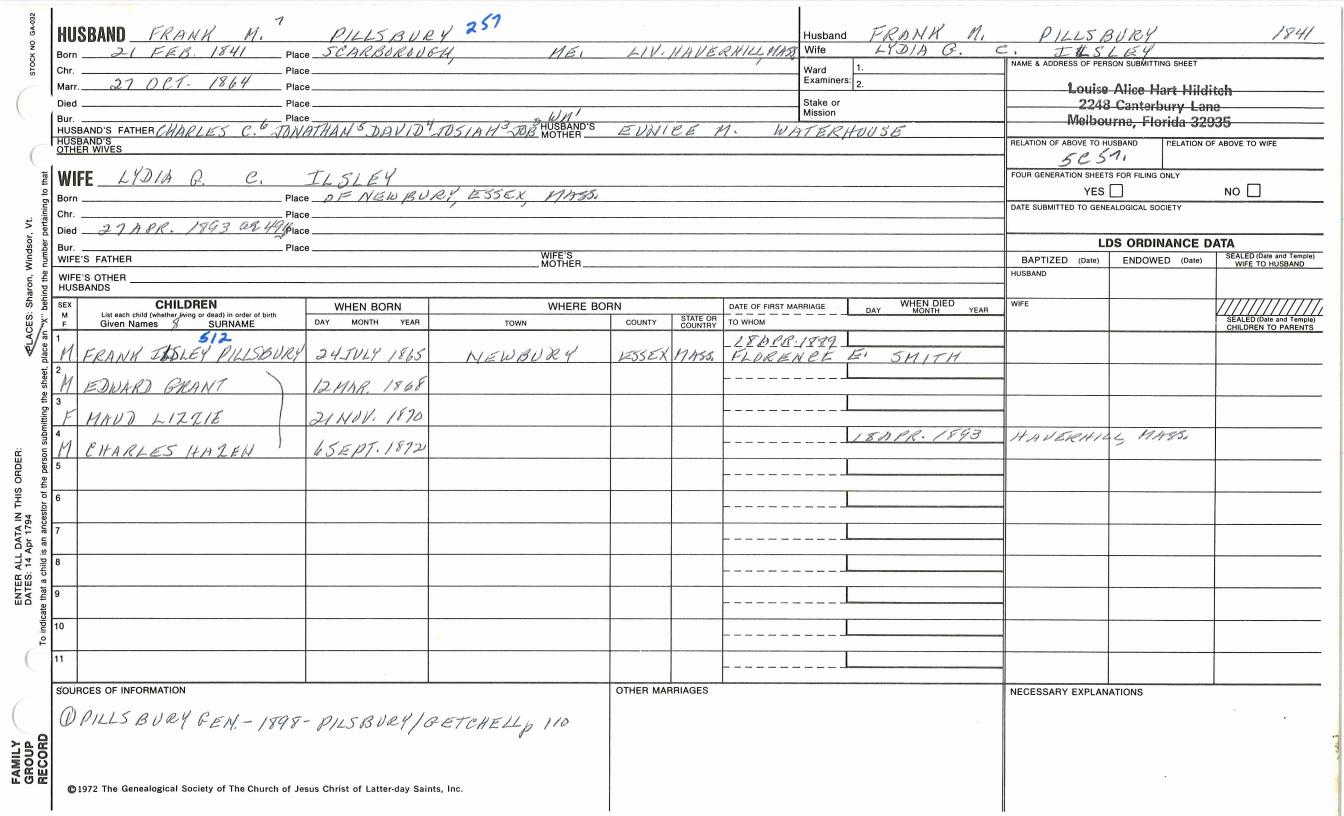 STOCK NO. GA-032
HUSBAND FRANK M. 7 PILLSBURY 257
Born 21 FEB. 1841 Place SCARBOROUGH, ME. LIV. HAVERHILL, MASS
Chr. Place
Marr. 27 OCT. 1864 Place
Died Place
Bur. Place
HUSBAND'S FATHER CHARLES C.6 JONATHAN5 DAVID4 JOSIAH3 JOB2 WM1 HUSBAND'S MOTHER EUNICE M. WATERHOUSE
HUSBAND'S OTHER WIVES
Husband FRANK M. PILLSBURY 1841
Wife LYDIA G. C. ILSLEY
Ward Examiners: 1.
2.
Stake or Mission
NAME & ADDRESS OF PERSON SUBMITTING SHEET
Louise Alice Hart Hilditch
2248 Canterbury Lane
Melbourne, Florida 32935
RELATION OF ABOVE TO HUSBAND RELATION OF ABOVE TO WIFE
FOUR GENERATION SHEETS FOR FILING ONLY
YES NO
DATE SUBMITTED TO GENEALOGICAL SOCIETY
WIFE LYDIA G. C. ILSLEY
Born Place OF NEWBURY, ESSEX, MASS.
Chr. Place
Died 27 APR. 1893 OR Place
Bur. Place
WIFE'S FATHER WIFE'S MOTHER
WIFE'S OTHER HUSBANDS
LDS ORDINANCE DATA
BAPTIZED (Date) ENDOWED (Date) SEALED (Date and Temple) WIFE TO HUSBAND
HUSBAND
WIFE
SEALED (Date and Temple) CHILDREN TO PARENTS
SEX M F
CHILDREN
List each child (whether living or dead) in order of birth
Given Names 8 SURNAME
WHEN BORN
DAY MONTH YEAR
WHERE BORN
TOWN COUNTY STATE OR COUNTRY
DATE OF FIRST MARRIAGE
TO WHOM
WHEN DIED
DAY MONTH YEAR
1 M 512 FRANK ILSLEY PILLSBURY 24 JULY 1865 NEWBURY ESSEX MASS. 18 APR. 1889 FLORENCE E. SMITH
2 M EDWARD GRANT 12 MAR. 1868
3 F MAUD LIZZIE 21 NOV. 1870
4 M CHARLES HAZEN 6 SEPT. 1872 18 APR. 1893 HAVERHILL, MASS.
5
6
7
8
9
10
11
SOURCES OF INFORMATION
① PILLSBURY GEN. - 1898 - PILSBURY/GETCHELL p 110
OTHER MARRIAGES
NECESSARY EXPLANATIONS
©1972 The Genealogical Society of The Church of Jesus Christ of Latter-day Saints, Inc.
FAMILY GROUP RECORD
ENTER ALL DATA IN THIS ORDER:
DATES: 14 Apr 1794
PLACES: Sharon, Windsor, Vt.
To indicate that a child is an ancestor of the person submitting the sheet, place an "X" behind the number pertaining to that